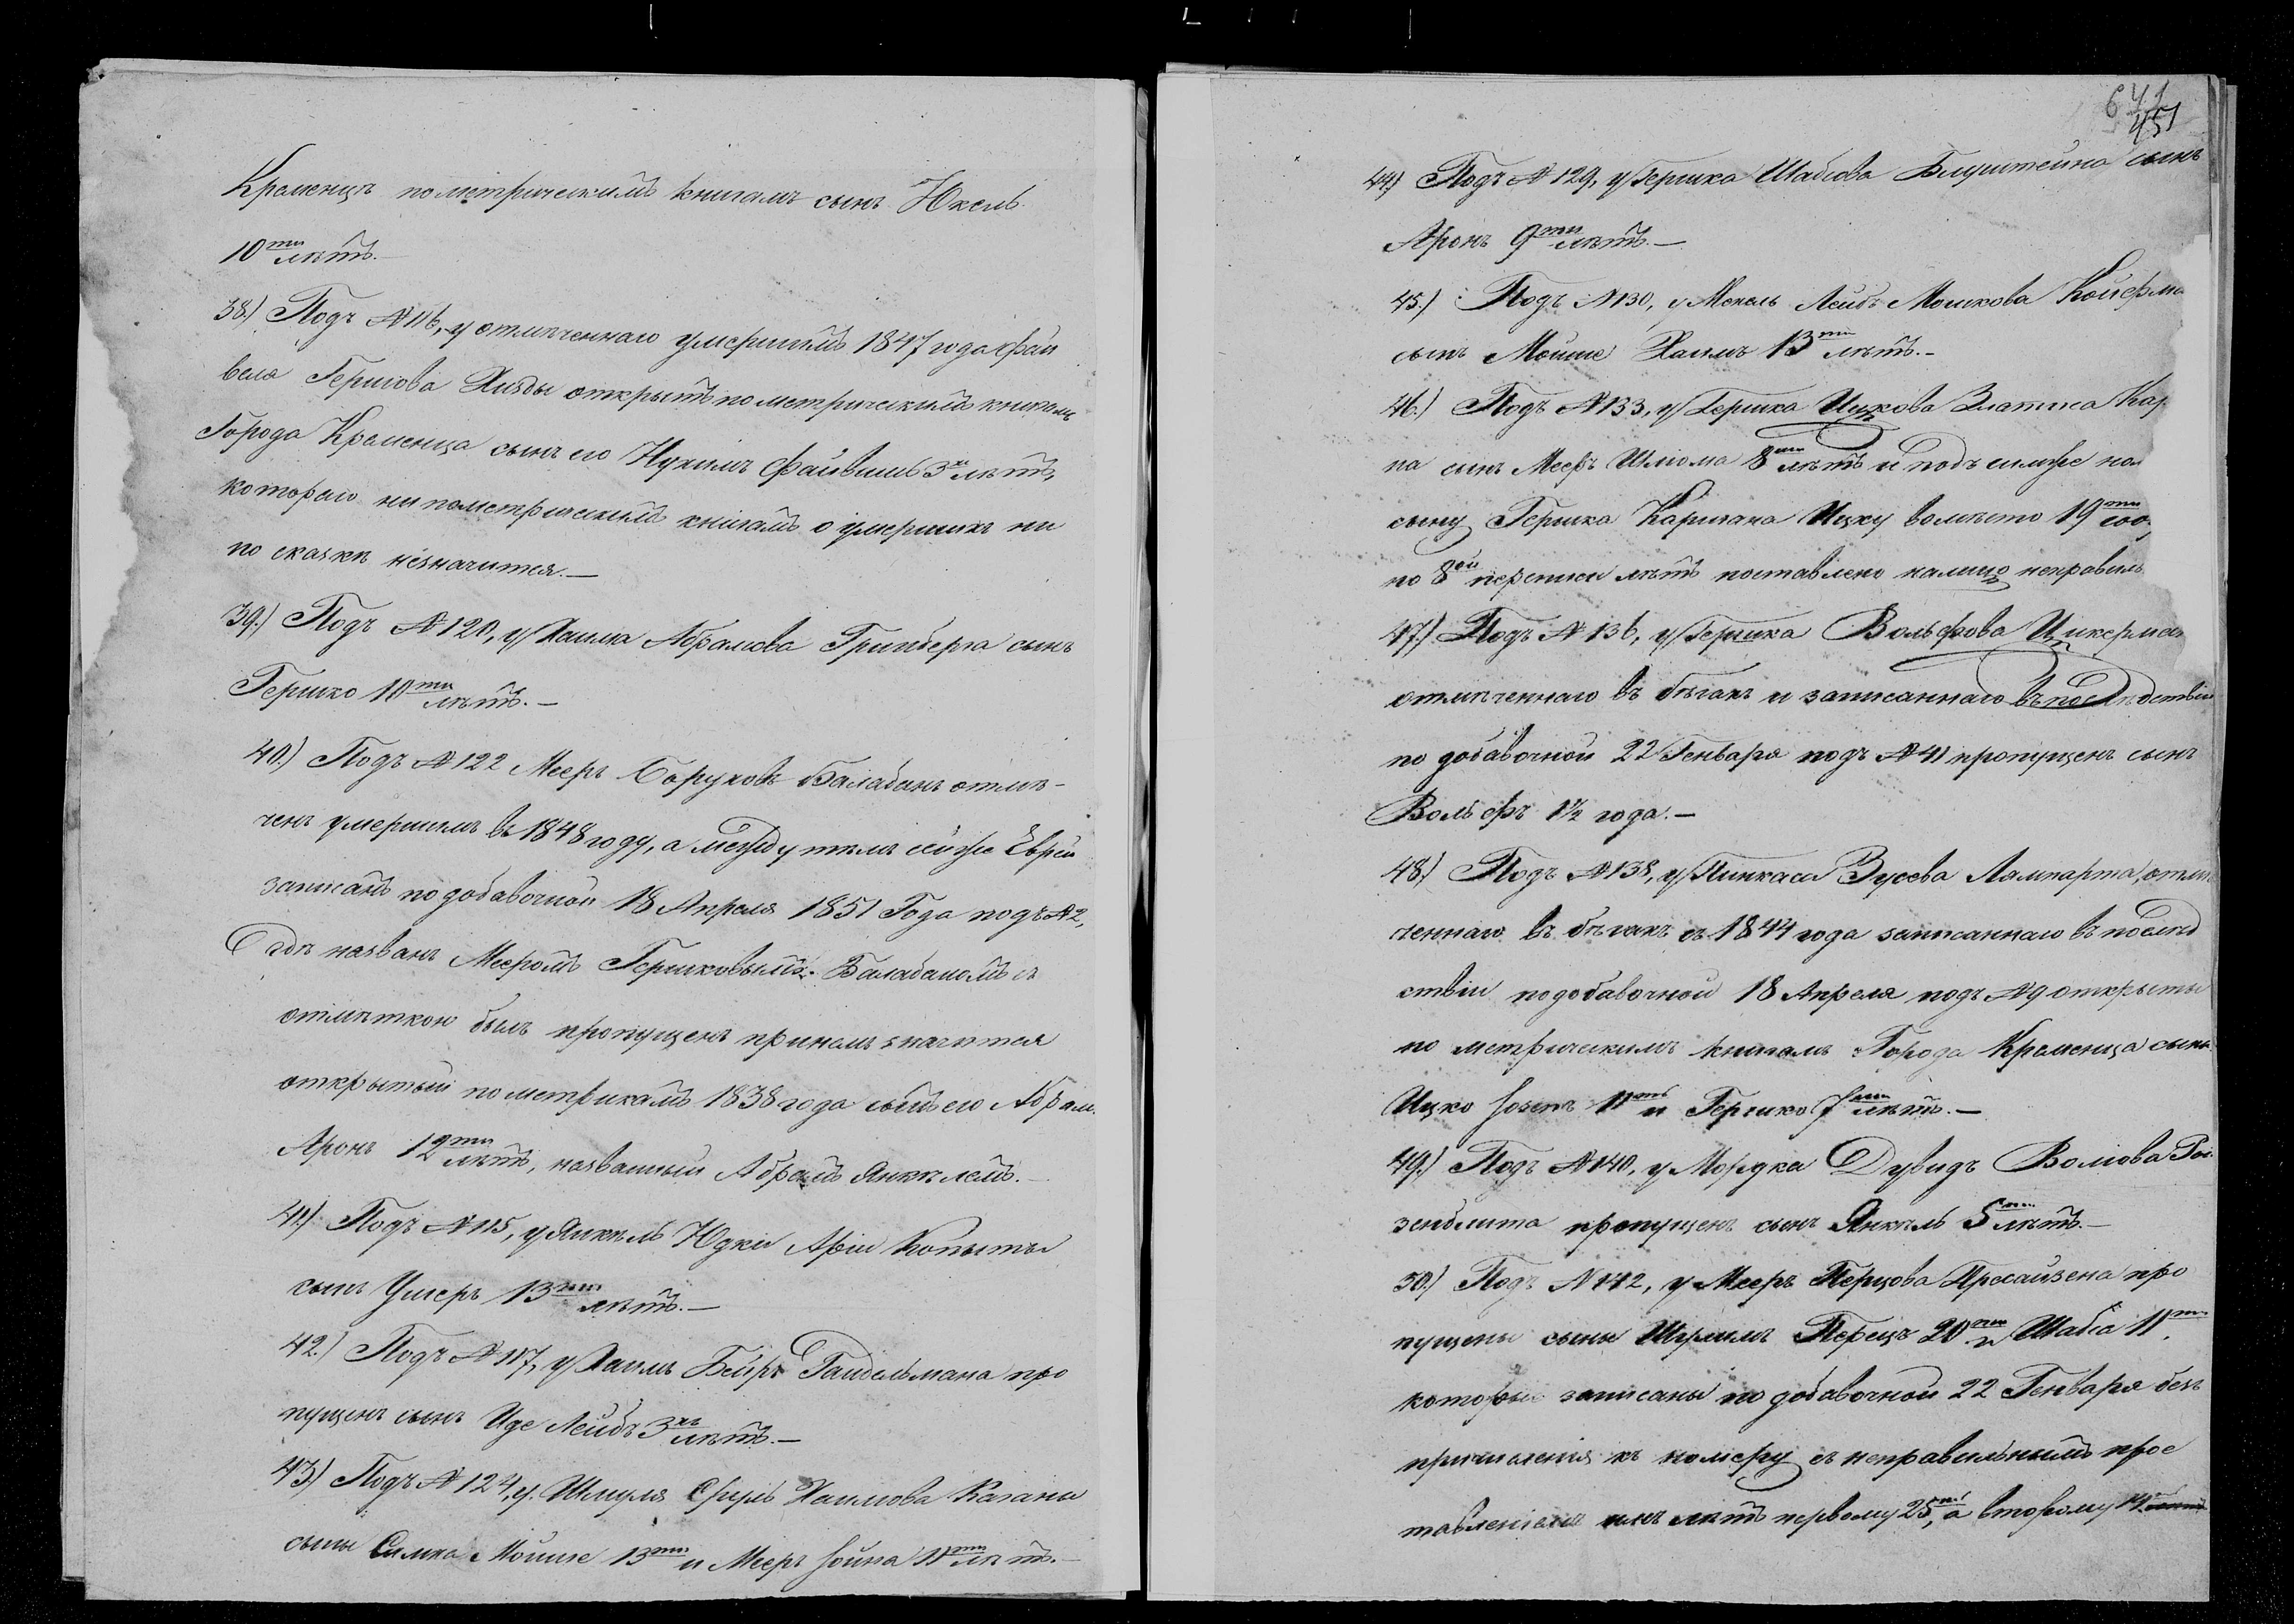 Кременцъ по метрическимъ книгамъ сынъ Юкель
10ти лѣтъ.
38.) Подъ № 116, у отмѣченнаго умершимъ 1847 года Фай
веля Гершова Хизды открытъ по метрическимъ книгамъ
Города Кременца сынъ его Нухимъ Файвишъ 3хъ лѣтъ,
котораго ни по метрическимъ книгамъ о умершихъ ни
по сказкѣ незначится.—
39.) Подъ № 120, у Хаима Абрамова Гринберга сынъ
Гершко 10ти лѣтъ.—
40.) Подъ № 122 Мееръ Боруховъ Балабанъ отмѣ-
ченъ умершимъ въ 1848 году, а между тѣмъ сей же Еврей
записанъ по добавочной 18 Апреля 1851 Года подъ № 2,
гдѣ названъ Мееромъ Гершковымъ Балабаномъ съ
отмѣткою былъ пропущенъ при немъ значится
открытый по метрикамъ 1838 года сынъ его Абрам.
Аронъ 12ти лѣтъ, названный Абрамъ Янкелемъ.—
41) Подъ № 115, у Янкель Юдки Арiи Копыты
сынъ Ушеръ 13ти лѣтъ.—
42.) Подъ № 117, у Хаимъ Бейръ Гандельмана про
пущенъ сынъ Иде Лейбъ 3хъ лѣтъ.—
43) Подъ № 124, у Шмуля Сруль Хаимова Каганы
сыны Симха Мойше 13ти и Мееръ Iойна 11ти лѣтъ.—
641
451
44) Подъ № 129, у Гершка Шабсова Блуштейна сынъ
Аронъ 9ти лѣтъ.—
45.) Подъ № 130, у Мекель Лейбъ Мошкова Койфма
сынъ Мойше Хаимъ 13ти лѣтъ.—
46.) Подъ № 133, у Гершка Ицкова Златиса Кар
па сынъ Мееръ Шлiома 8ми лѣтъ и подъ симже но
сыну Гершка Ицку вомѣсто 19ти
по 8ой переписи лѣтъ поставлено налицо неправиль
47.) Подъ № 136, у Гершка Вольфова Цикерма
отмѣченнаго въ бѣгахъ и записаннаго въ послѣдствiи
по добавочной 22 Генваря подъ № 41 пропущенъ сынъ
Вольфъ 1½ года.—
48.) Подъ № 138, у Пинкаса Зусева Лампарта, отмѣ
ченнаго въ бѣгахъ съ 1844 года записаннаго въ послѣд
ствiи по добавочной 18 Апреля подъ № 9 открыты
по метрическимъ книгамъ Города Кременца сыны
Ицко Iосепъ 11ть и Гершко 7ми лѣтъ.—
49.) Подъ № 140, у Мордка Дувидъ Волiова Рой
зенблита пропущенъ сынъ Янкель 5ти лѣтъ.—
50.) Подъ № 142, у Мееръ Перцова Пресайзена про
пущены сыны Шулимъ Перецъ 20ти и Шабса 11ти
которые записаны по добавочной 22 Генваря безъ
причисленiя къ номеру съ неправильнымъ прос
тавленiемъ имъ лѣтъ первому 25ть, а второму 14